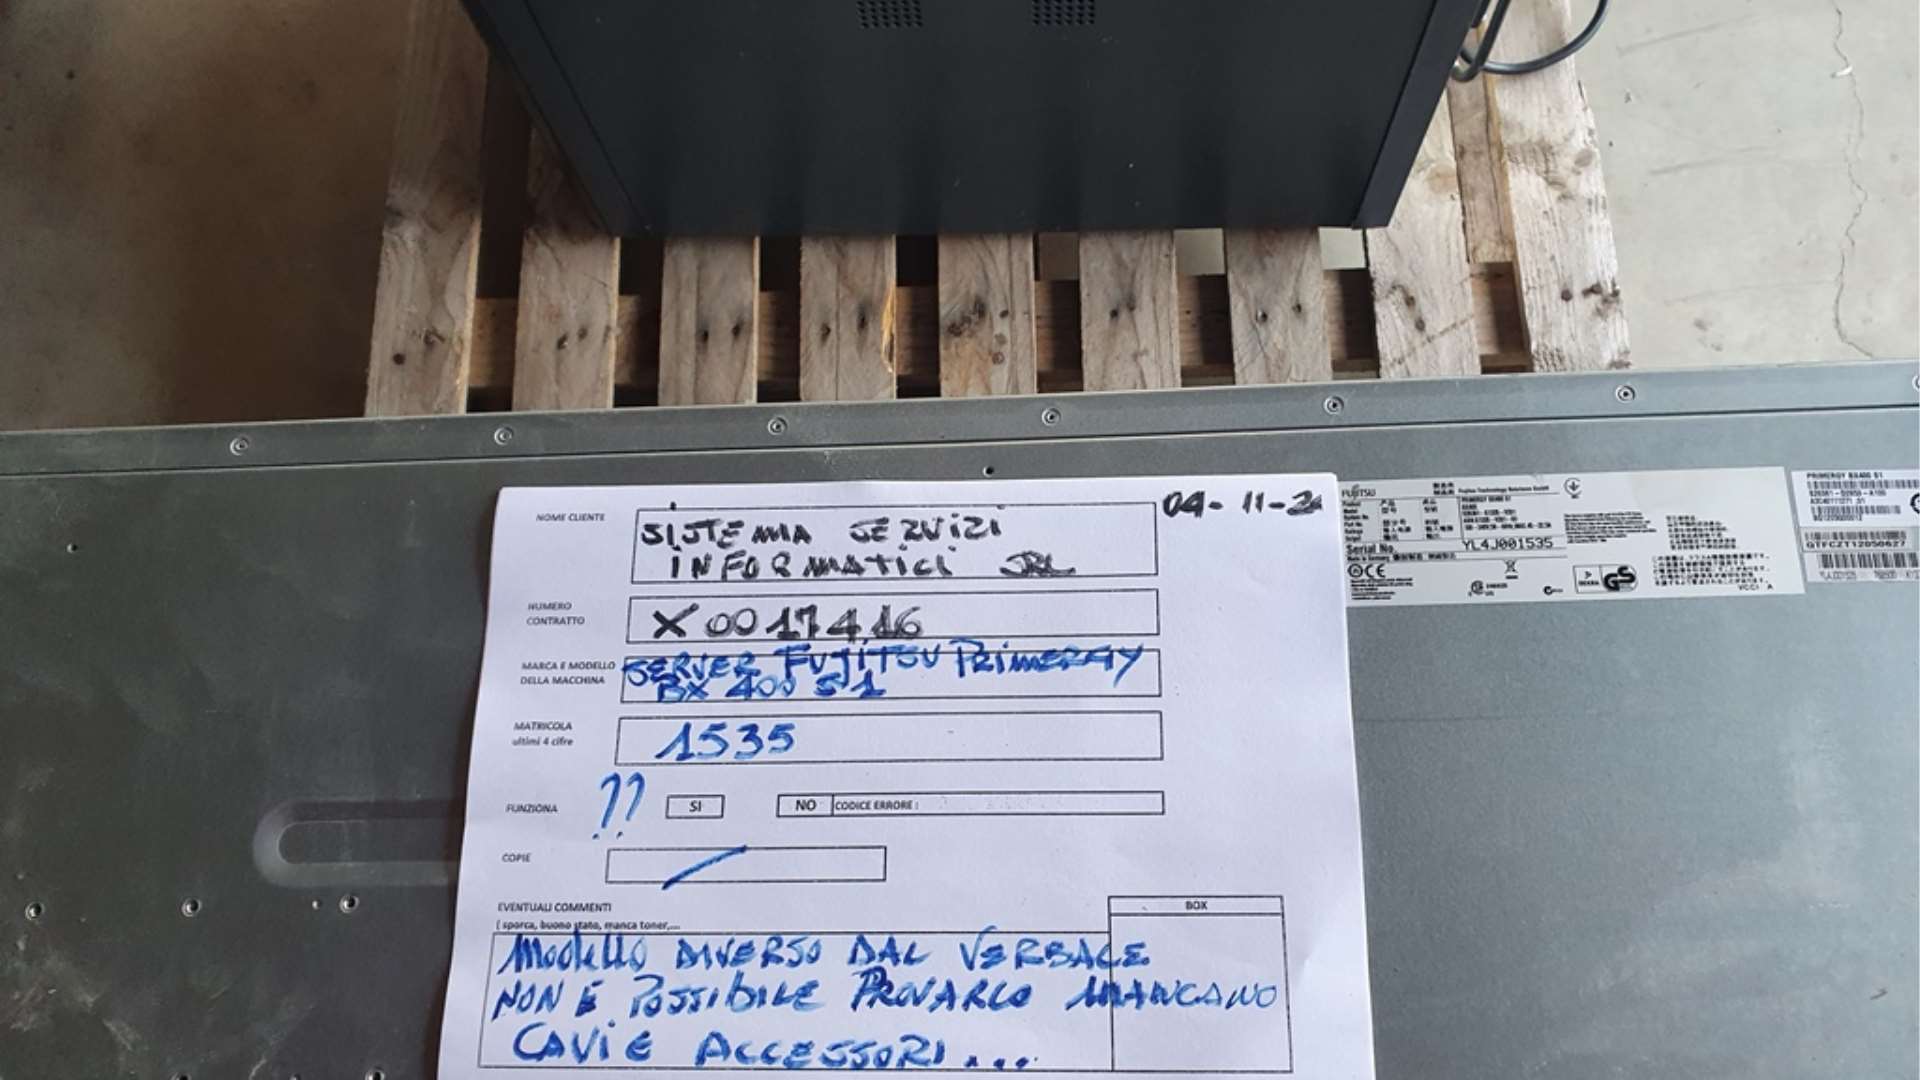 04-11-2
NOME CLIENTE
SISTEMA SERVIZI
INFORMATICI SRL
NUMERO
CONTRATTO
X0017416
MARCA E MODELLO
DELLA MACCHINA
SERVER FUJITSU PRIMERGY
BX 400 S1
MATRICOLA
ultimi 4 cifre
1535
FUNZIONA
??
SI
NO
CODICE ERRORE :
COPIE
EVENTUALI COMMENTI
( sporca, buono stato, manca toner,...
BOX
Modello DIVERSO DAL VERBALE
NON È POSSIBILE PROVARLO MANCANO
CAVI E ACCESSORI ...
FUJITSU
Fujitsu Technology Solutions GmbH
Serial No.
YL4J001535
CE
GS
VCCI A
PRIMERGY BX400 S1
QTFCZT12050627